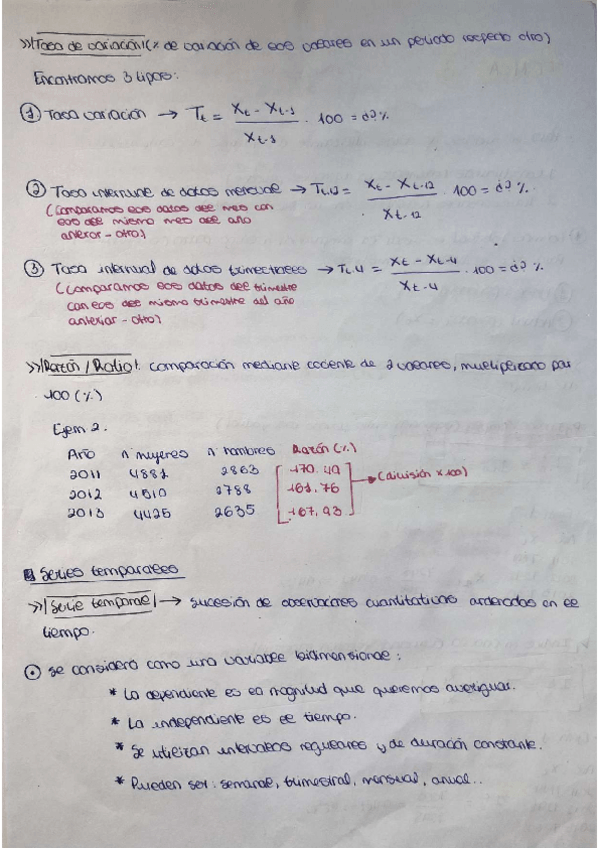 >>|Tasa de variación|(% de variación de los valores en un periodo respecto otro)
Encontramos 3 tipos:
① Tasa variación → Tt = (Xt - Xt-1) / Xt-1 · 100 = ¿? %
② Tasa interanual de datos mensuale → Tt,12 = (Xt - Xt-12) / Xt-12 · 100 = ¿? %
(Comparamos los datos del mes con
los del mismo mes del año
anterior - otro)
③ Tasa interanual de datos trimestrales → Tt,4 = (Xt - Xt-4) / Xt-4 · 100 = ¿? %
(Comparamos los datos del trimestre
con los del mismo trimestre del año
anterior - otro)
>>|Razón / Ratio|: comparación mediante cociente de 2 valores, multiplicado por
100 (%)
Ejem 2.
Año nº mujeres nº hombres Razón (%)
2011 4881 2863 170.49
2012 4510 2788 161,76 → (división x 100)
2013 4425 2635 167,93
Series temporales
>>|Serie temporal| → sucesión de observaciones cuantitativas ordenadas en el
tiempo.
⊙ Se considera como una variable bidimensional:
* La dependiente es la magnitud que queremos averiguar.
* La independiente es el tiempo.
* Se utilizan intervalos regulares y de duración constante.
* Pueden ser: semanal, trimestral, mensual, anual..